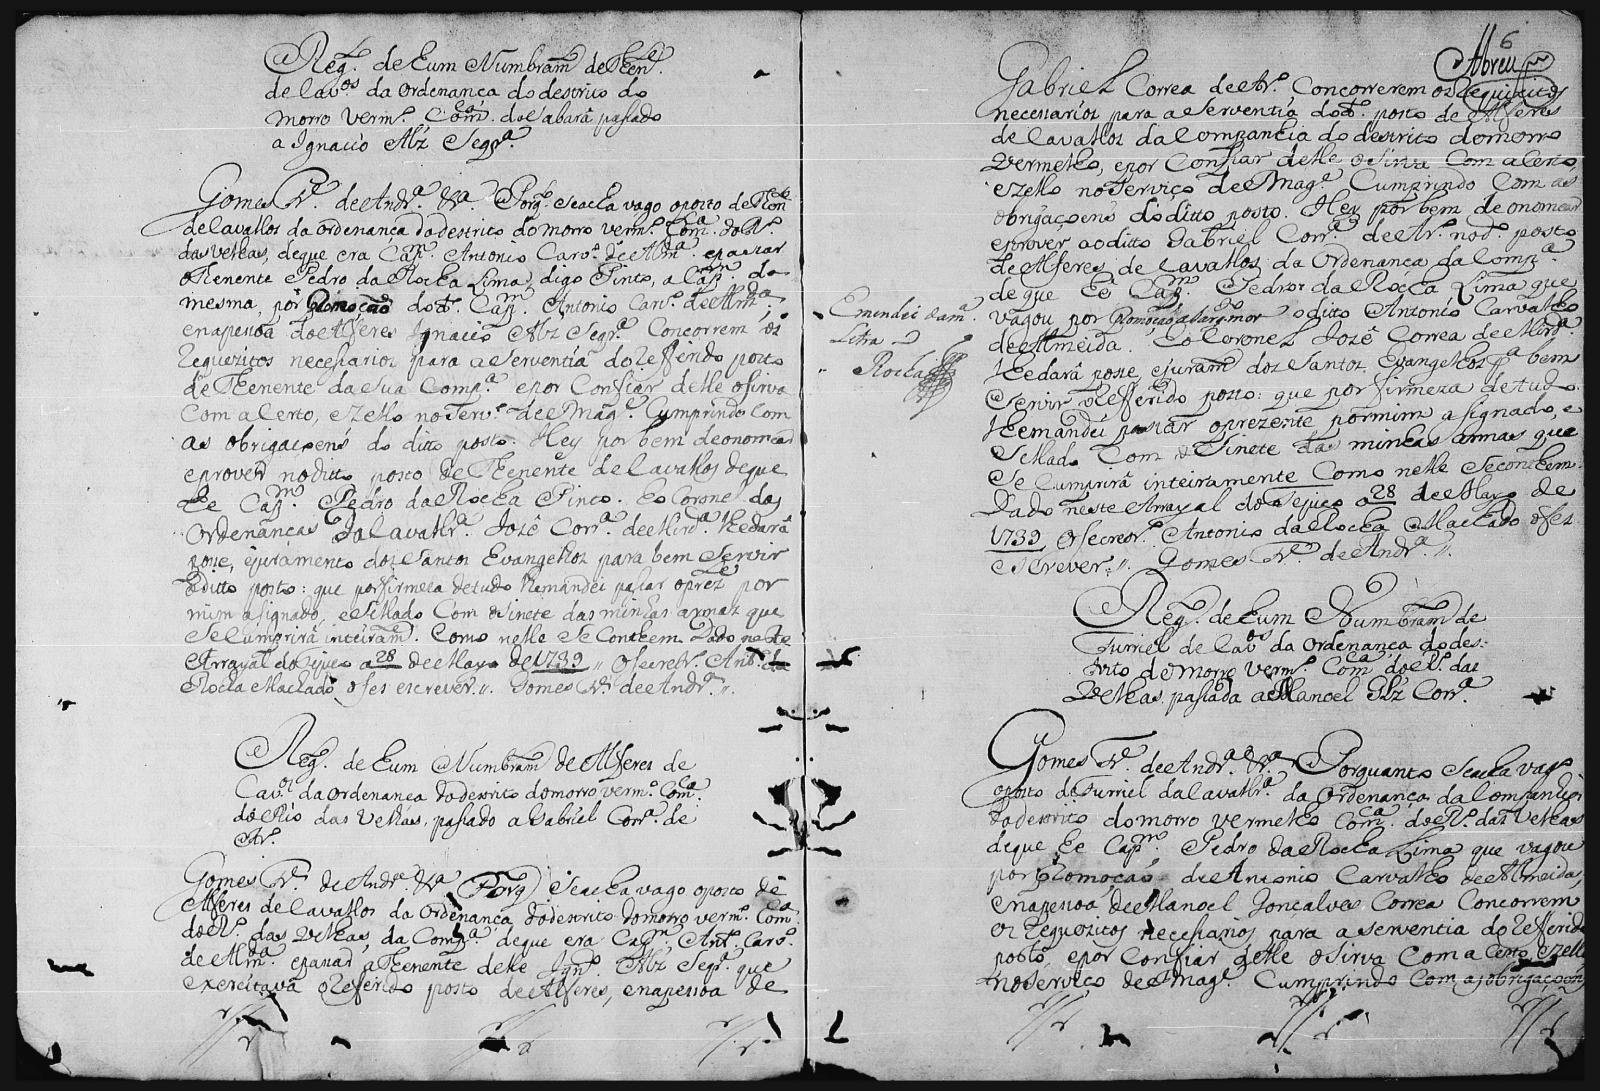 Reg.º de hum Numbram.to de Then.e
de Cav.os da ordenança do destrito do
morro verm.º Com.ca do Sabará passado
a Ignacio Alz Segr.ª
Gomes Fr.e de Andr.ª &ª. Porq. Se acha vago o posto de Then.e
de Cavallos da ordenança do destrito do morro verm.º Com.ca do R.º
das velhas, de que era Cap.m Antonio Carv.º de Alm.da e passar
o Thenente Pedro da Rocha Lima, digo Pinto, a Cap.m da
mesma, por Promoção do d.º Cap.m Antonio Carv.º de Alm.da
e na pessoa do Alferes Ignacio Alz Segr.ª Concorrem os
requezitos necessarios para a Serventia do Refferido posto
de Thenente da Sua Comp.ª e por Confiar delle o Sirva
Com acerto, e zello no Serv.º de S Mag.e Cumprindo Com
as obrigaçoens do ditto posto. Hey por bem de o nomear
e prover no ditto posto de Thenente de Cavallos de que
he Cap.m Pedro da Rocha Pinto. E o Coronel das
ordenanças da Cavall.ª José Corr.ª de Mird.ª lhe dará
posse, e juramento dos Santos Evangelhos para bem Servir
o ditto posto: que por firmeza de tudo lhe mandei passar o prez.te por
mim asignado, e Sellado Com o Sinete das minhas armas que
Se Cumprirá inteiram.te Como nelle Se Conthem. Dado neste
Arrayal do Tijuco a 28 de Mayo de 1739 // O Secretr.º Ant.º da
Rocha Machado o fes escrever //. Gomes Fr.e de Andr.ª //.
Reg.º de hum Numbram.to de Alferes de
Cav.os da ordenança do destrito do morro verm.º Com.ca
do Rio das Velhas, passado a Gabriel Corr.ª de
Ar.º
Gomes Fr.e de Andr.ª &ª Porq. Se acha vago o posto de
Alferes de Cavallos da ordenança do destrito do morro verm.º Com.ca
do R.º das Velhas, da Comp.ª de que era Cap.m Ant.º Carv.º
de Alm.da e passar a Thenente delle Ign.º Alz Segr.ª que
exercitava o Refferido posto de Alferes, e na pessoa de
6
Abreu
Gabriel Correa de Ar.º Concorrerem os requizitos
necessarios para a Serventia do d.º posto de Alferes
de Cavallos da Companhia do destrito do morro
vermelho, e por Confiar delle o Sirva Com acerto
e zello no Serviço de S Mag.e Cumprindo Com as
obrigaçoens do ditto posto. Hey por bem de o nomear
e prover ao ditto Gabriel Corr.ª de Ar.º no d.º posto
de Alferes de Cavallos da Ordenança da Comp.ª
de que he Cap.m Pedro da Rocha Lima que
vagou por Promoção a Sarg.to mor o dito Antonio Carvalho
de Almeida. E o Coronel José Correa de Mird.ª
lhe dará posse, e juram.to dos Santos Evangelhos p.ª bem
Servir o Refferido posto: que por firmeza de tudo
lhe mandei passar o prezente por mim asignado, e
Sellado Com o Sinete das minhas armas que
Se Cumprirá inteiramente Como nelle Se conthem.
Dado neste Arrayal do Tejuco a 28 de Mayo de
1739 O Secretr.º Antonio da Rocha Machado o fes
escrever //. Gomes Fr.e de Andr.ª //.
Emendei dam.ª
Letra
Rocha
Reg.º de hum Numbram.to de
Furriel de Cav.os da ordenança do des-
trito do morro verm.º Com.ca do R.º das
Velhas, passada a Manoel Glz Corr.ª
Gomes Fr.e de Andr.ª &ª Porquanto Se acha vago
o posto de Furriel da Cavall.ª da Ordenança da Companhia
do destrito do morro vermelho Com.ca do R.º das velhas
de que he Cap.m Pedro da Rocha Lima que vagou
por Promoção de Antonio Carvalho de Almeida,
e na pessoa de Manoel Gonçalves Correa Concorrem
os requezitos necessarios para a serventia do refferido
posto, e por Confiar delle o Sirva Com acerto e zello
no Serviço de S Mag.e Cumprindo Com as obrigaçoens